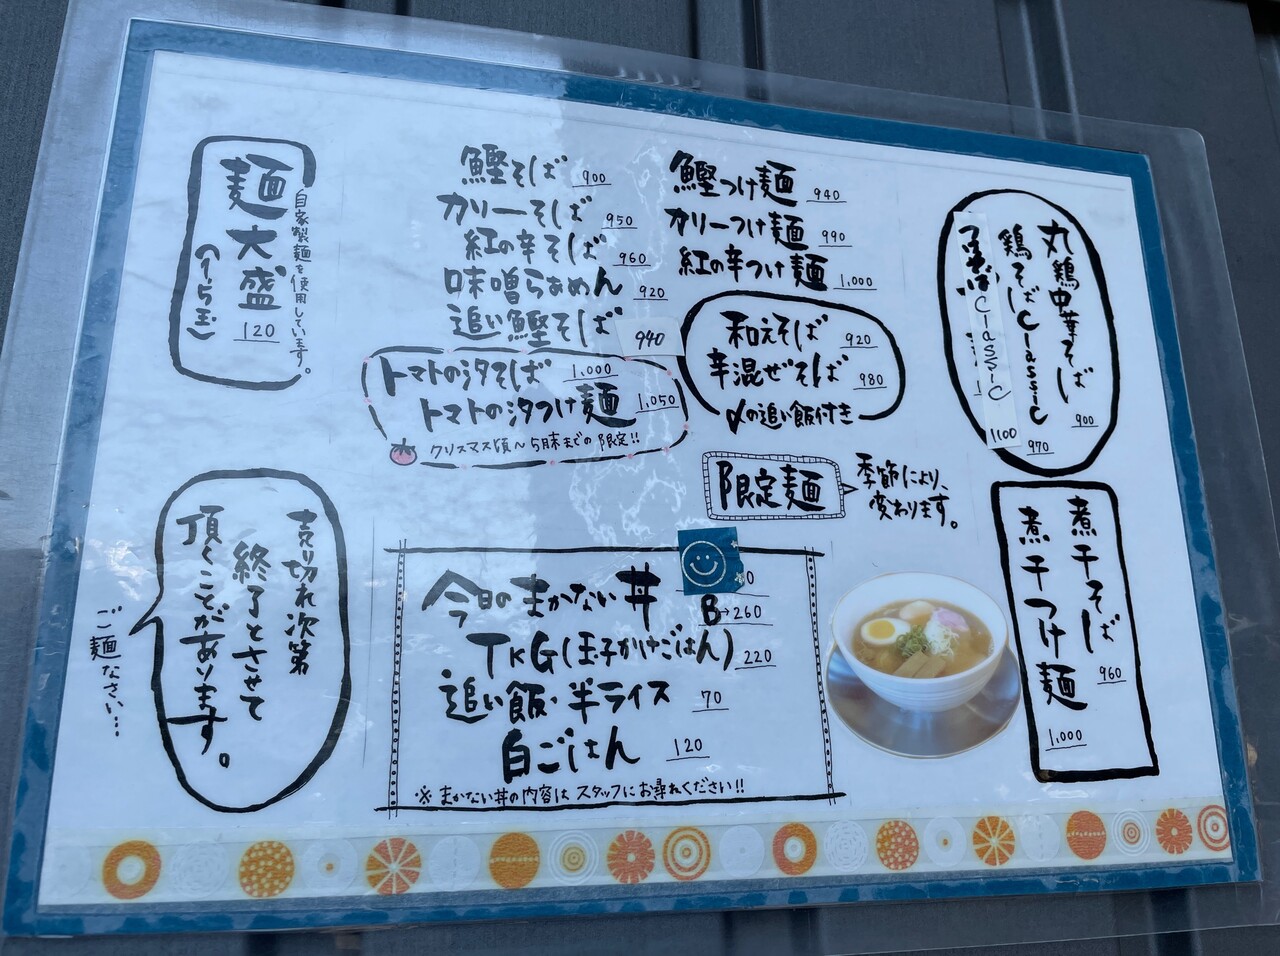 丸鶏中華そば 900
鶏そばClassic 970
Classic 1100
煮干そば 960
煮干つけ麺 1,000
鰹つけ麺 940
カリーつけ麺 990
紅の辛つけ麺 1,000
和えそば 920
辛混ぜそば 980
〆の追い飯付き
限定麺
季節により、
変わります。
鰹そば 900
カリーそば 950
紅の辛そば 960
味噌らぁめん 920
追い鰹そば 940
トマトの汐そば 1,000
トマトの汐つけ麺 1,050
クリスマス頃〜5月末までの限定!!
自家製麺を使用しています。
麺大盛
(1〜1.5玉)
120
今日のまかない丼
B→260
TKG(玉子かけごはん) 220
追い飯・半ライス 70
白ごはん 120
※まかない丼の内容はスタッフにお尋ねください!!
売り切れ次第
終了とさせて
頂くことがあります。
ご麺なさい…